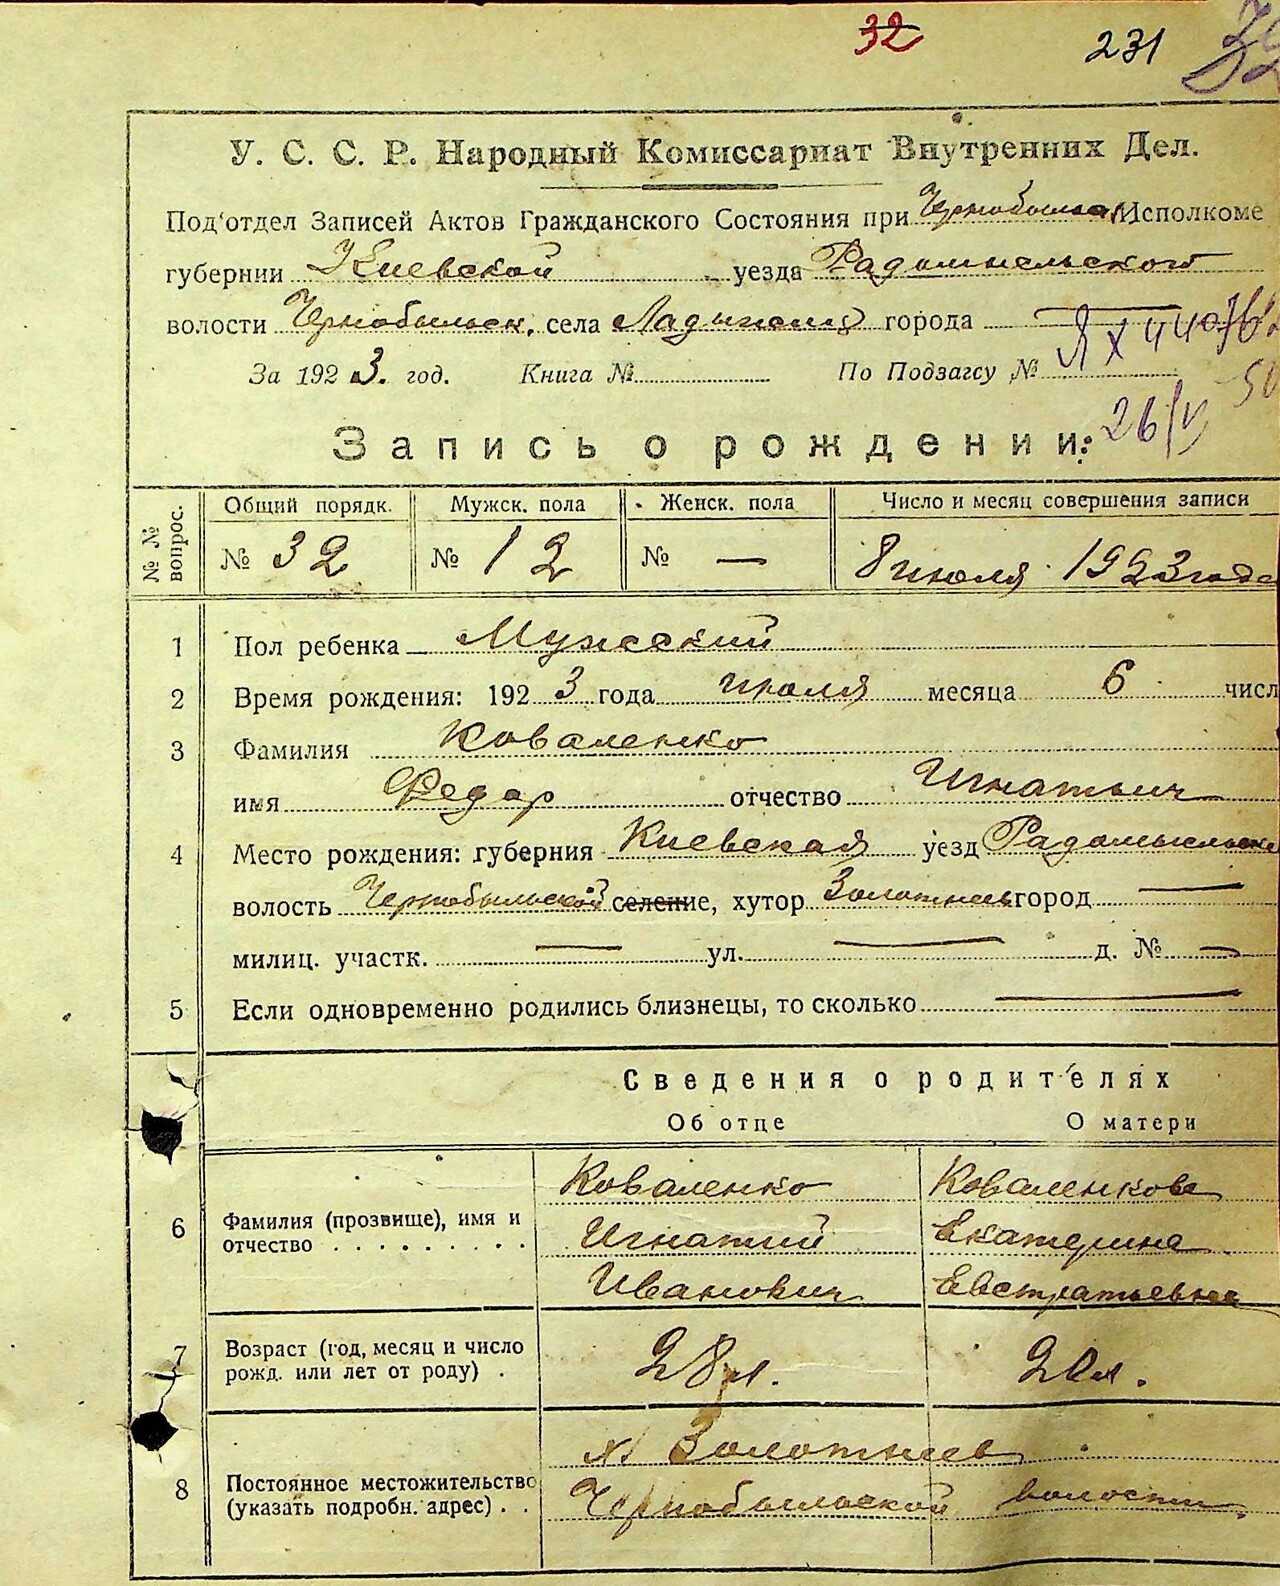 32
231
У. С. С. Р. Народный Комиссариат Внутренних Дел.
Под'отдел Записей Актов Гражданского Состояния при Исполкоме
губернии Киевской уезда Радомысльского
волости Чернобыльск. села города
За 1923. год. Книга № По Подзагсу №
26/V
Запись о рождении:
№№ вопрос. Общий порядк. Мужск. пола Женск. пола Число и месяц совершения записи
№ 32 № 12 № — 8 июля 1923 года
1 Пол ребенка Мужеский
2 Время рождения: 1923 года июля месяца 6 числ
3 Фамилия Коваленко
имя Федор отчество Игнатьич
4 Место рождения: губерния Киевская уезд
волость Чернобыльской селение, хутор Золотнеев город —
милиц. участк. — ул. — д. № —
5 Если одновременно родились близнецы, то сколько —
Сведения о родителях
Об отце О матери
Коваленко Коваленкова
6 Фамилия (прозвище), имя и Игнатий Екатерина
отчество . . . . . . . . . Иванович Евстратьевна
7 Возраст (год, месяц и число 28 л. 20 л.
рожд. или лет от роду) .
х. Золотнеев
8 Постоянное местожительство Чернобыльской волости.
(указать подробн. адрес) . .